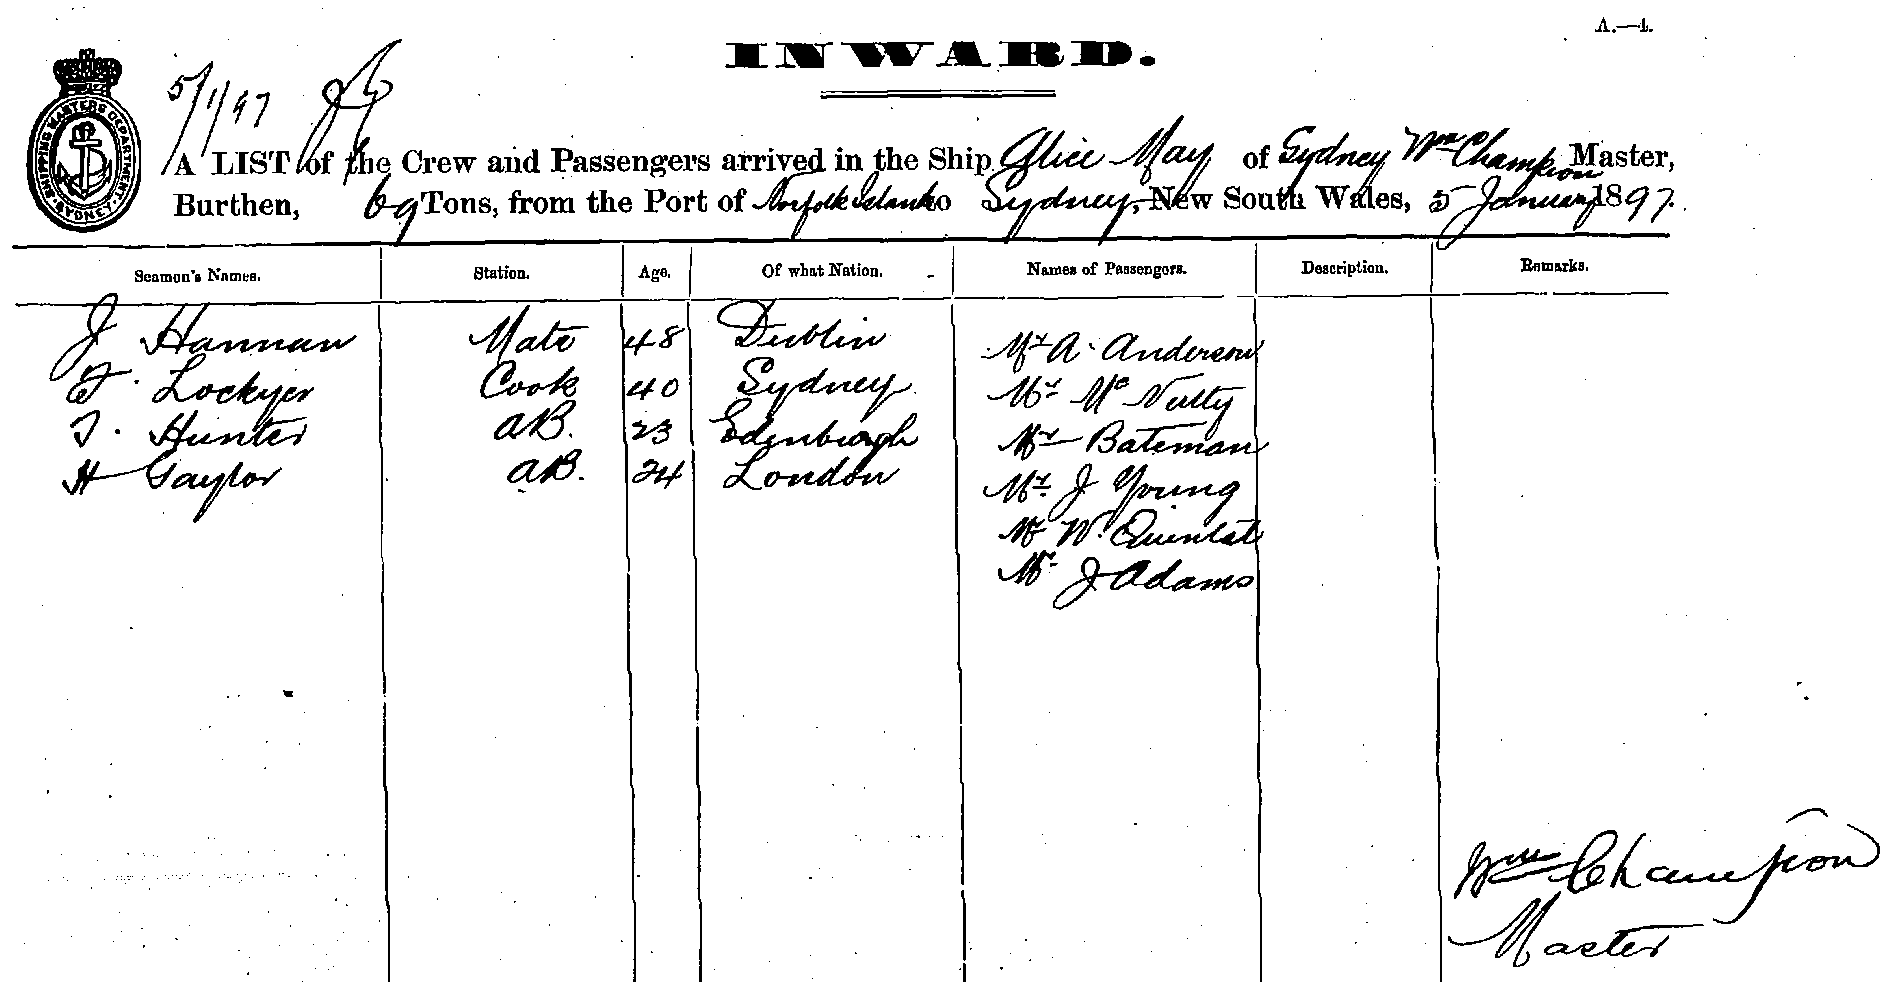 A.—4.
INWARD.
5/1/97
SHIPPING MASTERS DEPARTMENT SYDNEY
A LIST of the Crew and Passengers arrived in the Ship Alice May of Sydney Wm Champion Master,
Burthen, 69 Tons, from the Port of Norfolk Island to Sydney, New South Wales, 5 January 1897.
Seamen's Names. Station. Age. Of what Nation. Names of Passengers. Description. Remarks.
J Hannan Mate 48 Dublin Mr A. Anderson
F. Lockyer Cook 40 Sydney Mr Mc Nulty
T. Hunter AB. 23 Edenburgh Mr Bateman
H Taylor AB. 24 London Mr J Young
Mr W. Quintal
Mr J Adams
Wm Champion
Master